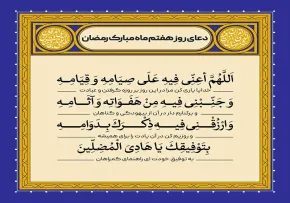 دعای روز هفتم ماه مبارک رمضان
اَللّهُمَّ اَعِنّی فیهِ عَلی صِیامِهِ وَ قِیامِهِ
خدایا یاری کن مرا در این روز بر روزه گرفتن و عبادت
وَ جَنِّبْنی فیهِ مِنْ هَفَواتِهِ وَ آثامِهِ
و برکنارم دار در آن از بیهودگی و گناهان
وَ ارْزُقْنی فیهِ ذِکْرَکَ بِدَوامِهِ
و روزیم کن در آن یادت را برای همیشه
بِتَوْفیقِکَ یا هادِیَ الْمُضِلّینَ
به توفیق خودت ای راهنمای گمراهان